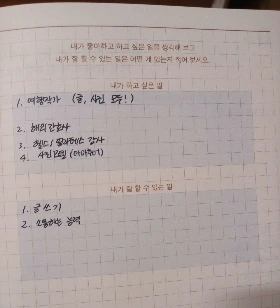 내가 좋아하고 하고 싶은 일을 생각해 보고
내가 잘 할 수 있는 일은 어떤 게 있는지 적어 보세요.
내가 하고 싶은 일
1. 여행작가 (글, 사진 모두!)
2. 해외간호사
3. 헬스/필라테스 강사
4. 사진모델 (아마추어)
내가 잘 할 수 있는 일
1. 글쓰기
2. 소통하는 능력